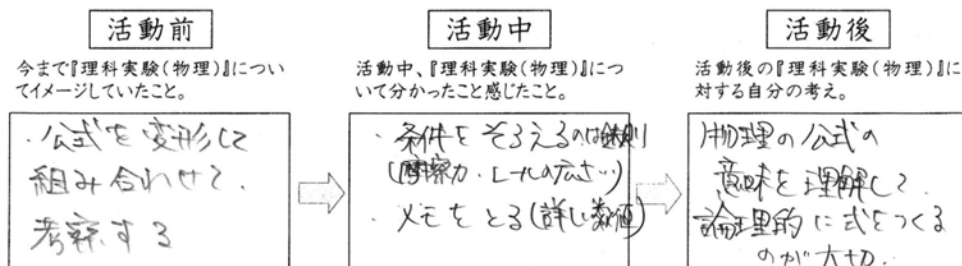 活動前
今まで『理科実験(物理)』につい
てイメージしていたこと。
・公式を変形して
組み合わせて、
考察する
活動中
活動中、『理科実験(物理)』につ
いて分かったこと感じたこと。
・条件をそろえるのは鉄則
(摩擦力・レールの広さ…)
・メモをとる(詳しい数値)
活動後
活動後の『理科実験(物理)』に
対する自分の考え。
物理の公式の
意味を理解して、
論理的に式をつくる
のが大切.